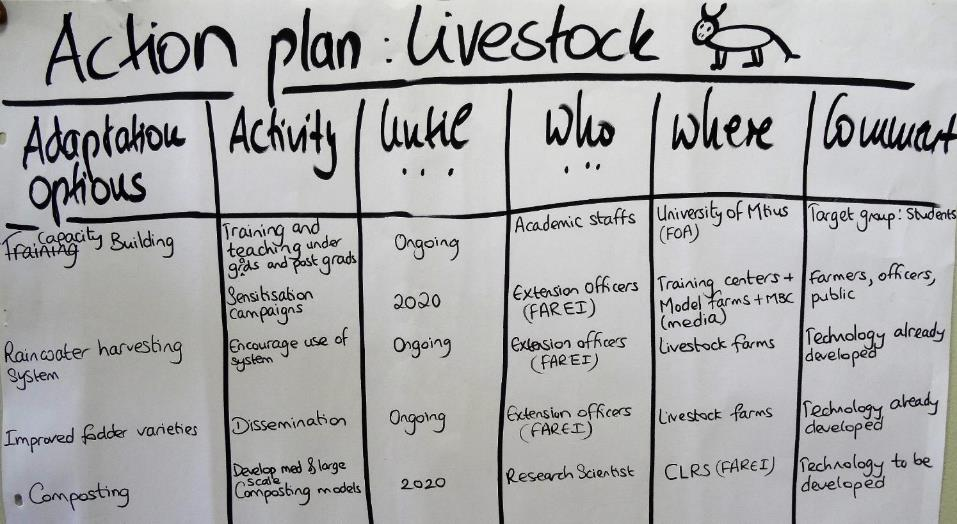 Action plan : Livestock
Adaptation options
Activity
Until ...
Who ...
Where
Comment
Training Capacity Building
Training and
teaching under
grads and post grads
Ongoing
Academic staffs
University of Mtius
(FOA)
Target group: Students
Sensitisation
campaigns
2020
Extension officers
(FAREI)
Training centers +
Model farms + MBC
(media)
Farmers, officers,
public
Rainwater harvesting
System
Encourage use of
system
Ongoing
Extension officers
(FAREI)
Livestock farms
Technology already
developed
Improved fodder varieties
Dissemination
Ongoing
Extension officers
(FAREI)
Livestock farms
Technology already
developed
Composting
Develop med & large
scale
Composting models
2020
Research Scientist
CLRS (FAREI)
Technology to be
developed